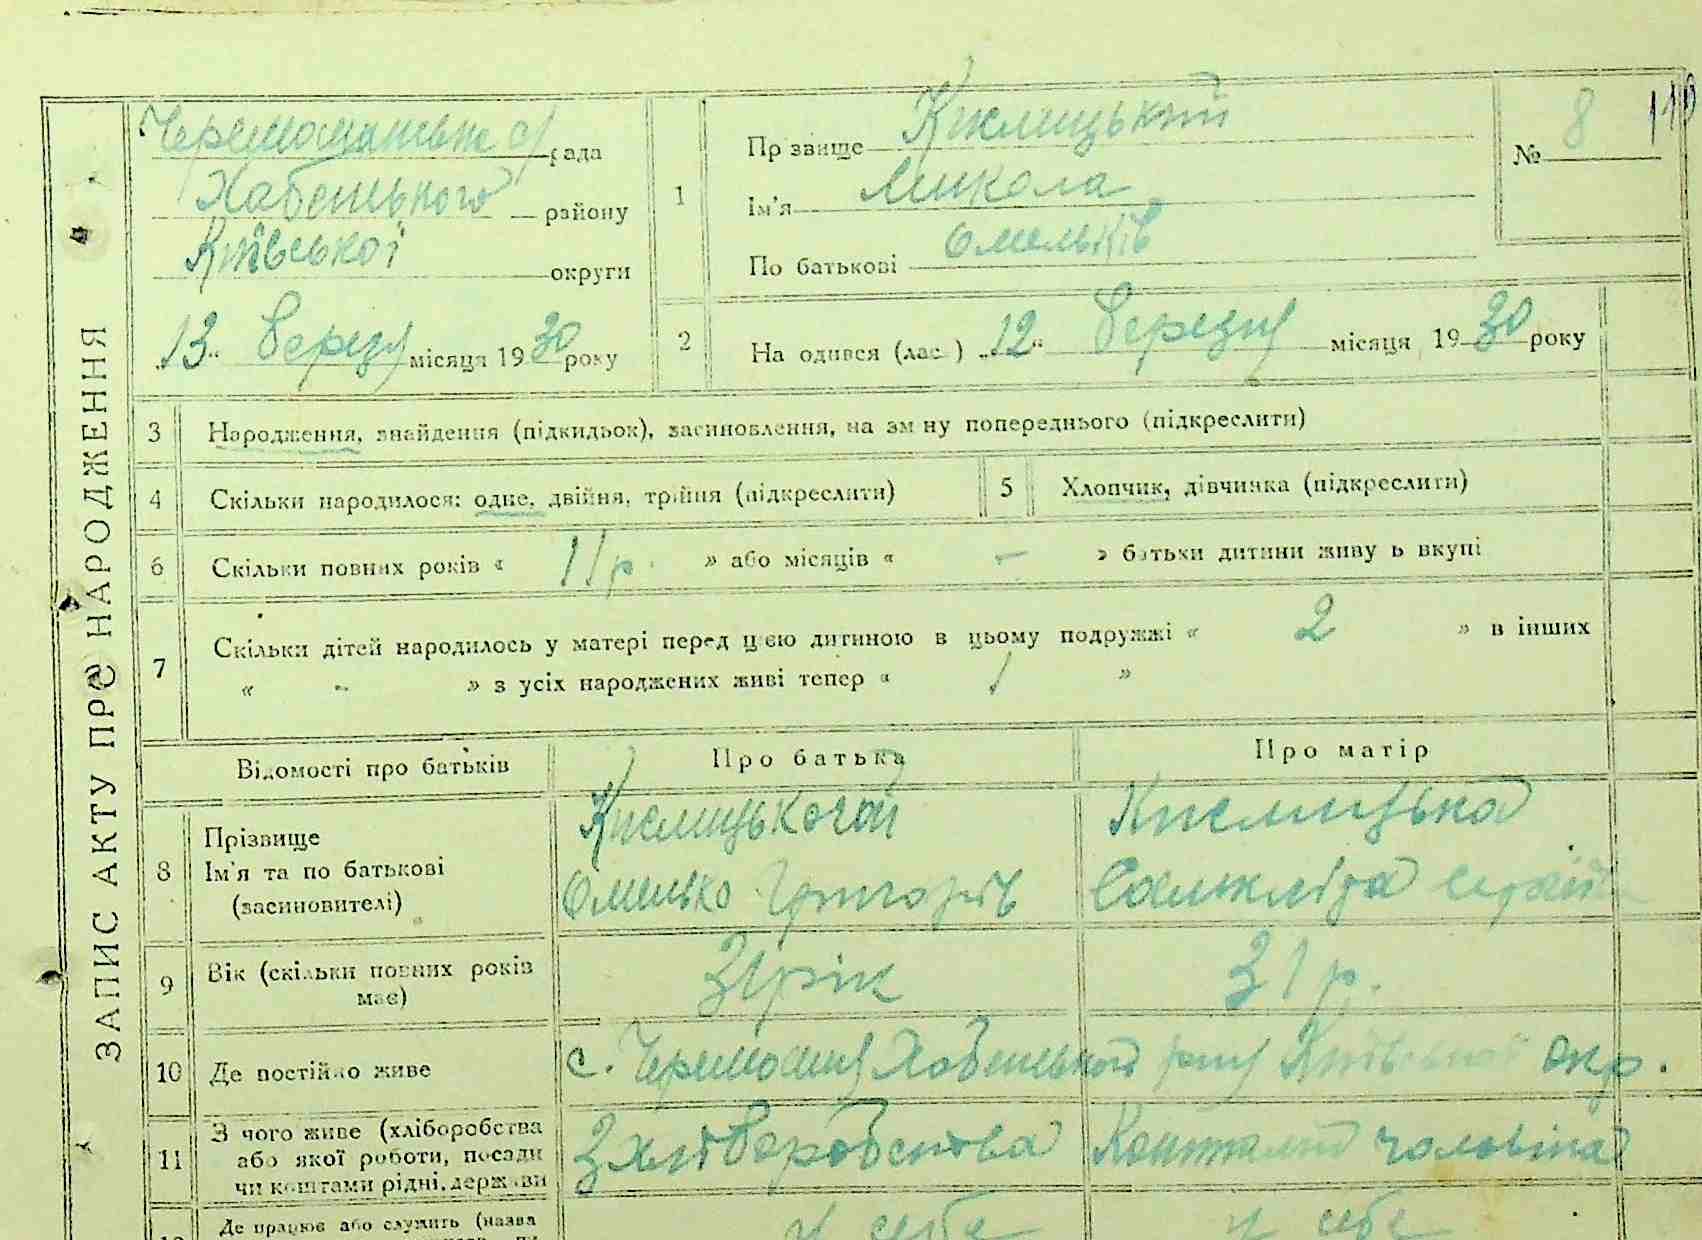 ЗАПИС АКТУ ПРО НАРОДЖЕННЯ
рада
Хабенського району
Київської округи
„13“ березня місяця 1930 року
1
Прізвище Кислицький
Ім'я Микола
По батькові Омельків
№ 8
110
2
Народився (лас) „12“ березня місяця 1930 року
3 Народження, знайдення (підкидьок), засиновлення, на зміну попереднього (підкреслити)
4 Скільки народилося: одне, двійня, трійня (підкреслити)
5 Хлопчик, дівчинка (підкреслити)
6 Скільки повних років « 11 р. » або місяців « - » батьки дитини живуть вкупі
7 Скільки дітей народилось у матері перед цією дитиною в цьому подружжі « 2 » в інших
« - » з усіх народжених живі тепер « 1 »
Відомості про батьків
Про батька
Про матір
8 Прізвище
Ім'я та по батькові
(засиновителі)
Кислицький
Омелько Григорів
Кислицька
9 Вік (скільки повних років
має)
31 рік
31 р.
10 Де постійно живе
с. Черемошня Хабенського рну Київської окр.
11 З чого живе (хліборобства
або якої роботи, посади
чи коштами рідні, держави
З хліборобства
чоловіка
Де працює або служить (назва
у себе
у себе